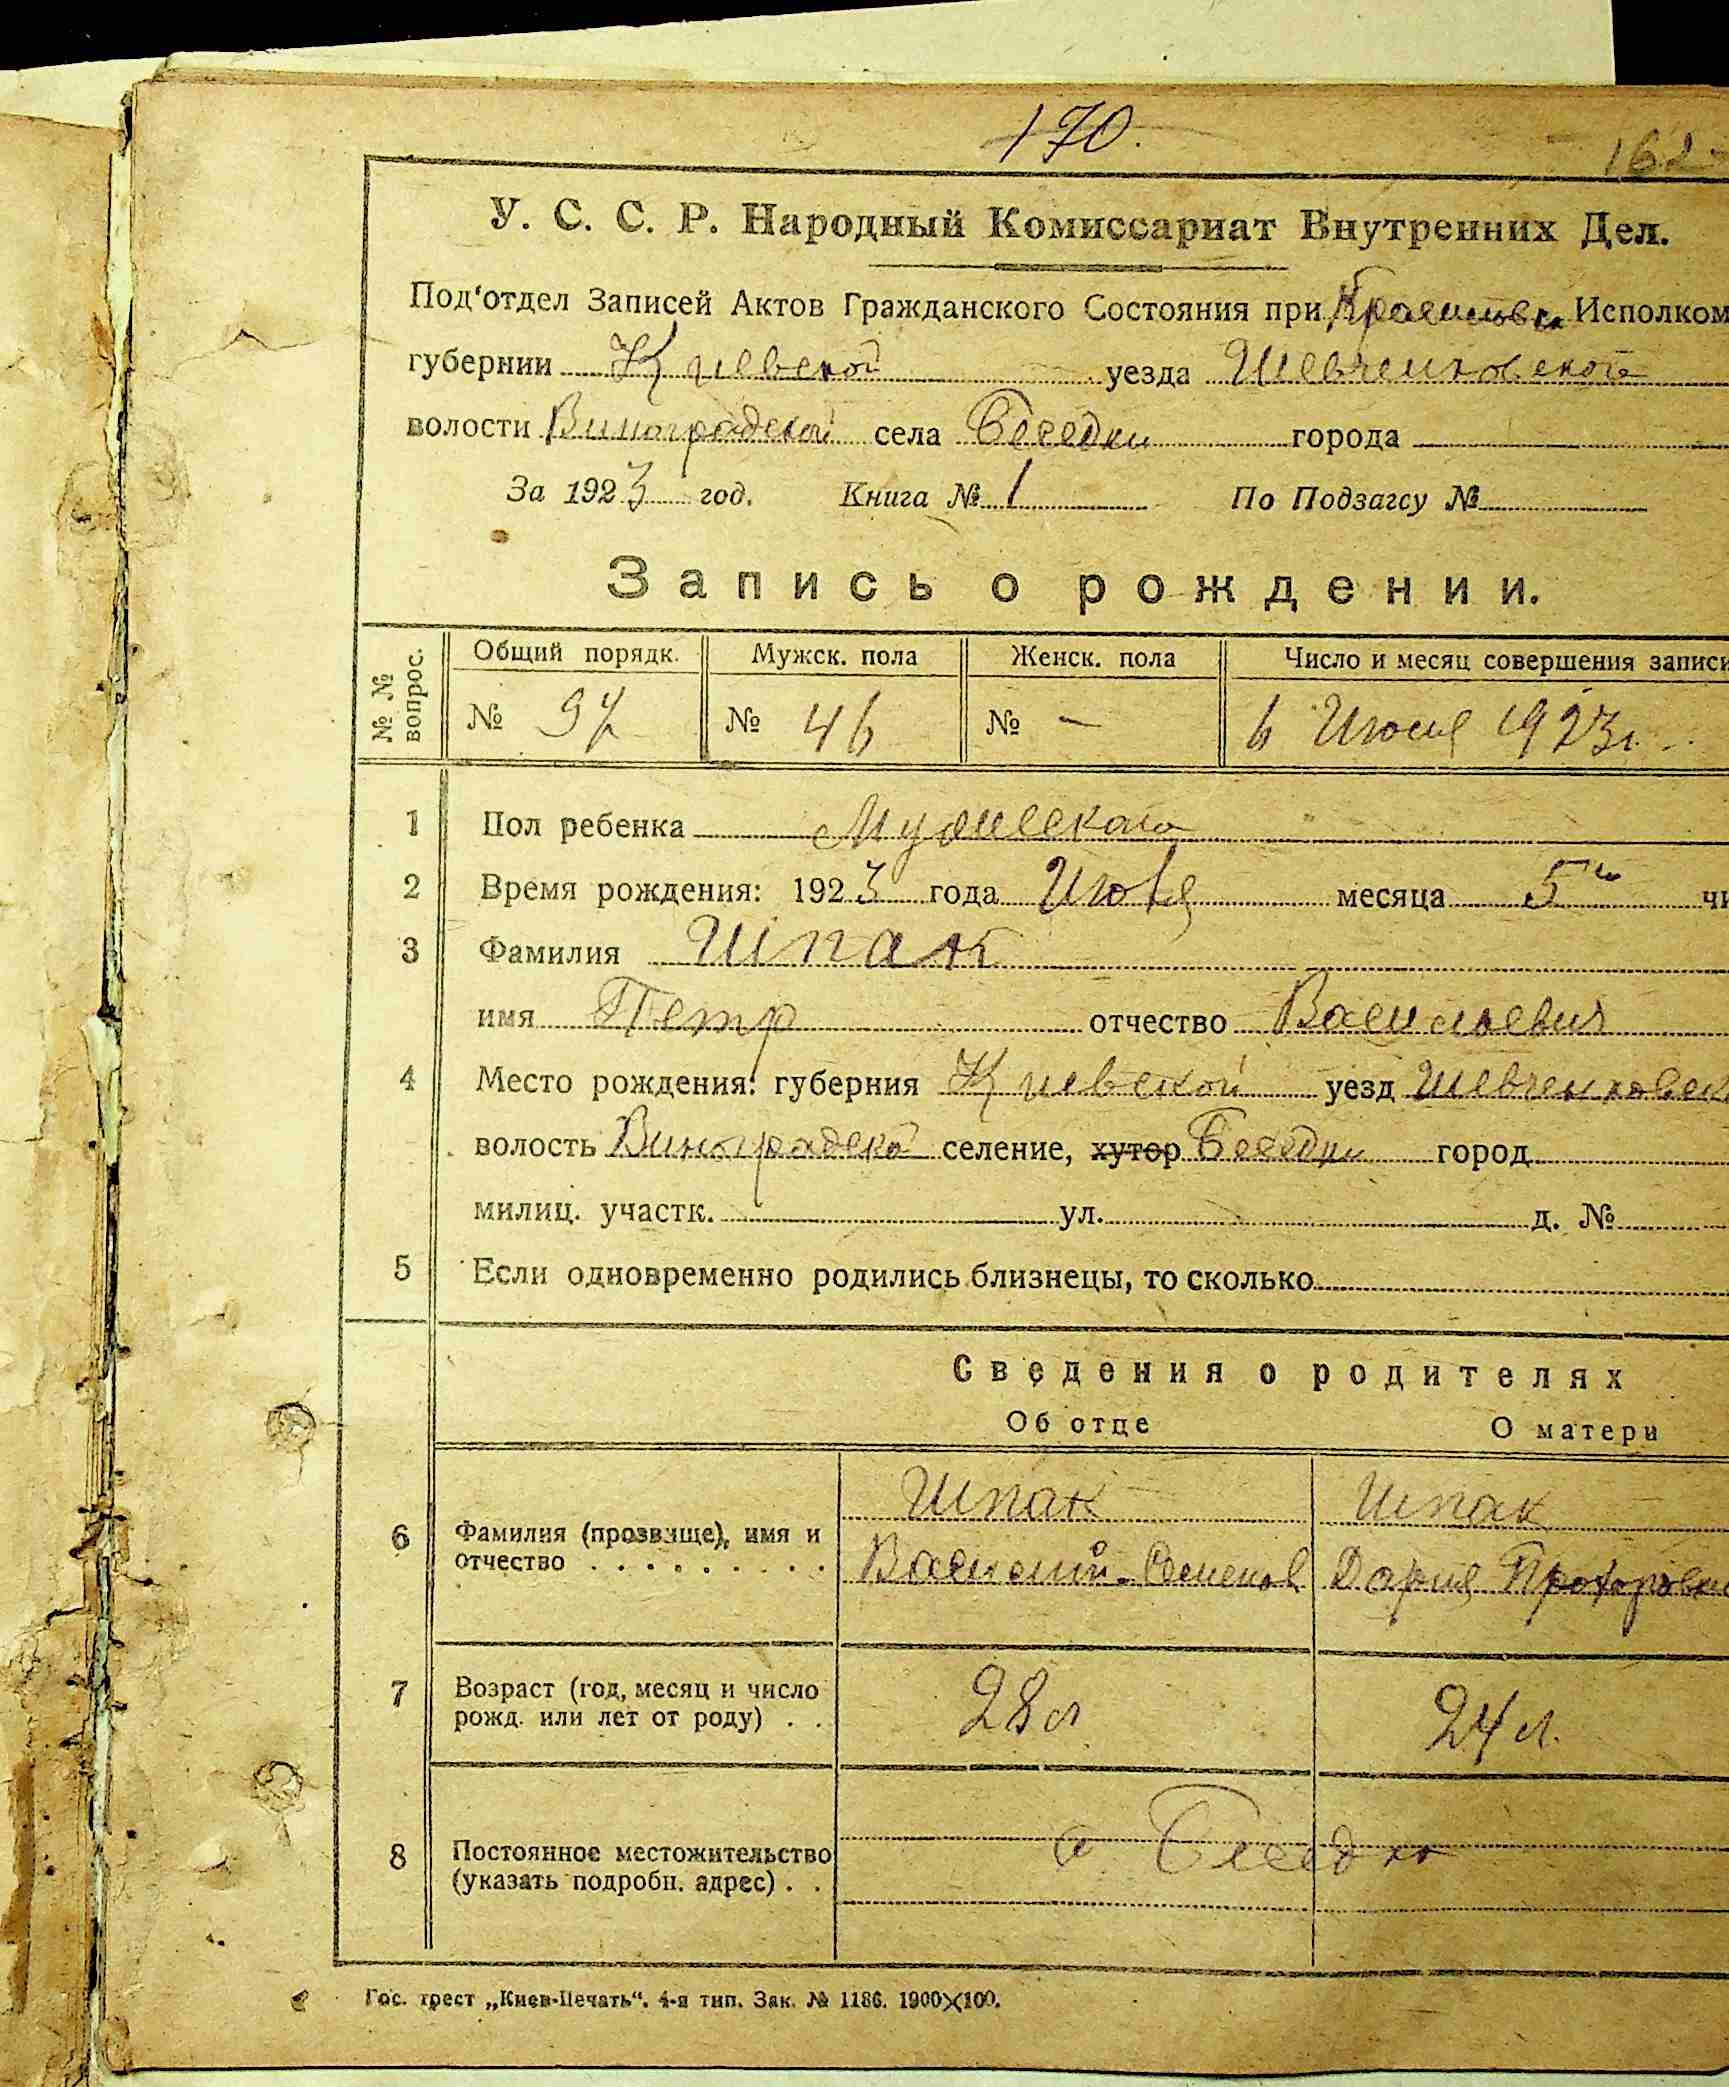 170.
162
У. С. С. Р. Народный Комиссариат Внутренних Дел.
Под'отдел Записей Актов Гражданского Состояния при Исполком
губернии Киевской уезда Шевченковского
волости Виноградской села Беседки города
За 1923 год. Книга № 1 По Подзагсу №
Запись о рождении.
№ № вопрос.
Общий порядк. Мужск. пола Женск. пола Число и месяц совершения записи
№ 97 № 46 № — 6 Июля 1923 г.
1 Пол ребенка Мужеского
2 Время рождения: 1923 года Июля месяца 5го чи
3 Фамилия Шпак
имя Петр отчество Васильевич
4 Место рождения: губерния Киевской уезд Шевченковск
волость Виноградской селение, хутор Беседки город
милиц. участк. ул. д. №
5 Если одновременно родились близнецы, то сколько
Сведения о родителях
Об отце О матери
Шпак Шпак
6 Фамилия (прозвище), имя и
отчество Василий Семенов Дария Прохоровна
7 Возраст (год, месяц и число
рожд. или лет от роду) 28 л 24 л.
8 Постоянное местожительство с Беседка
(указать подробн. адрес)
Гос. трест „Киев-Печать“. 4-я тип. Зак. № 1186. 1900×100.